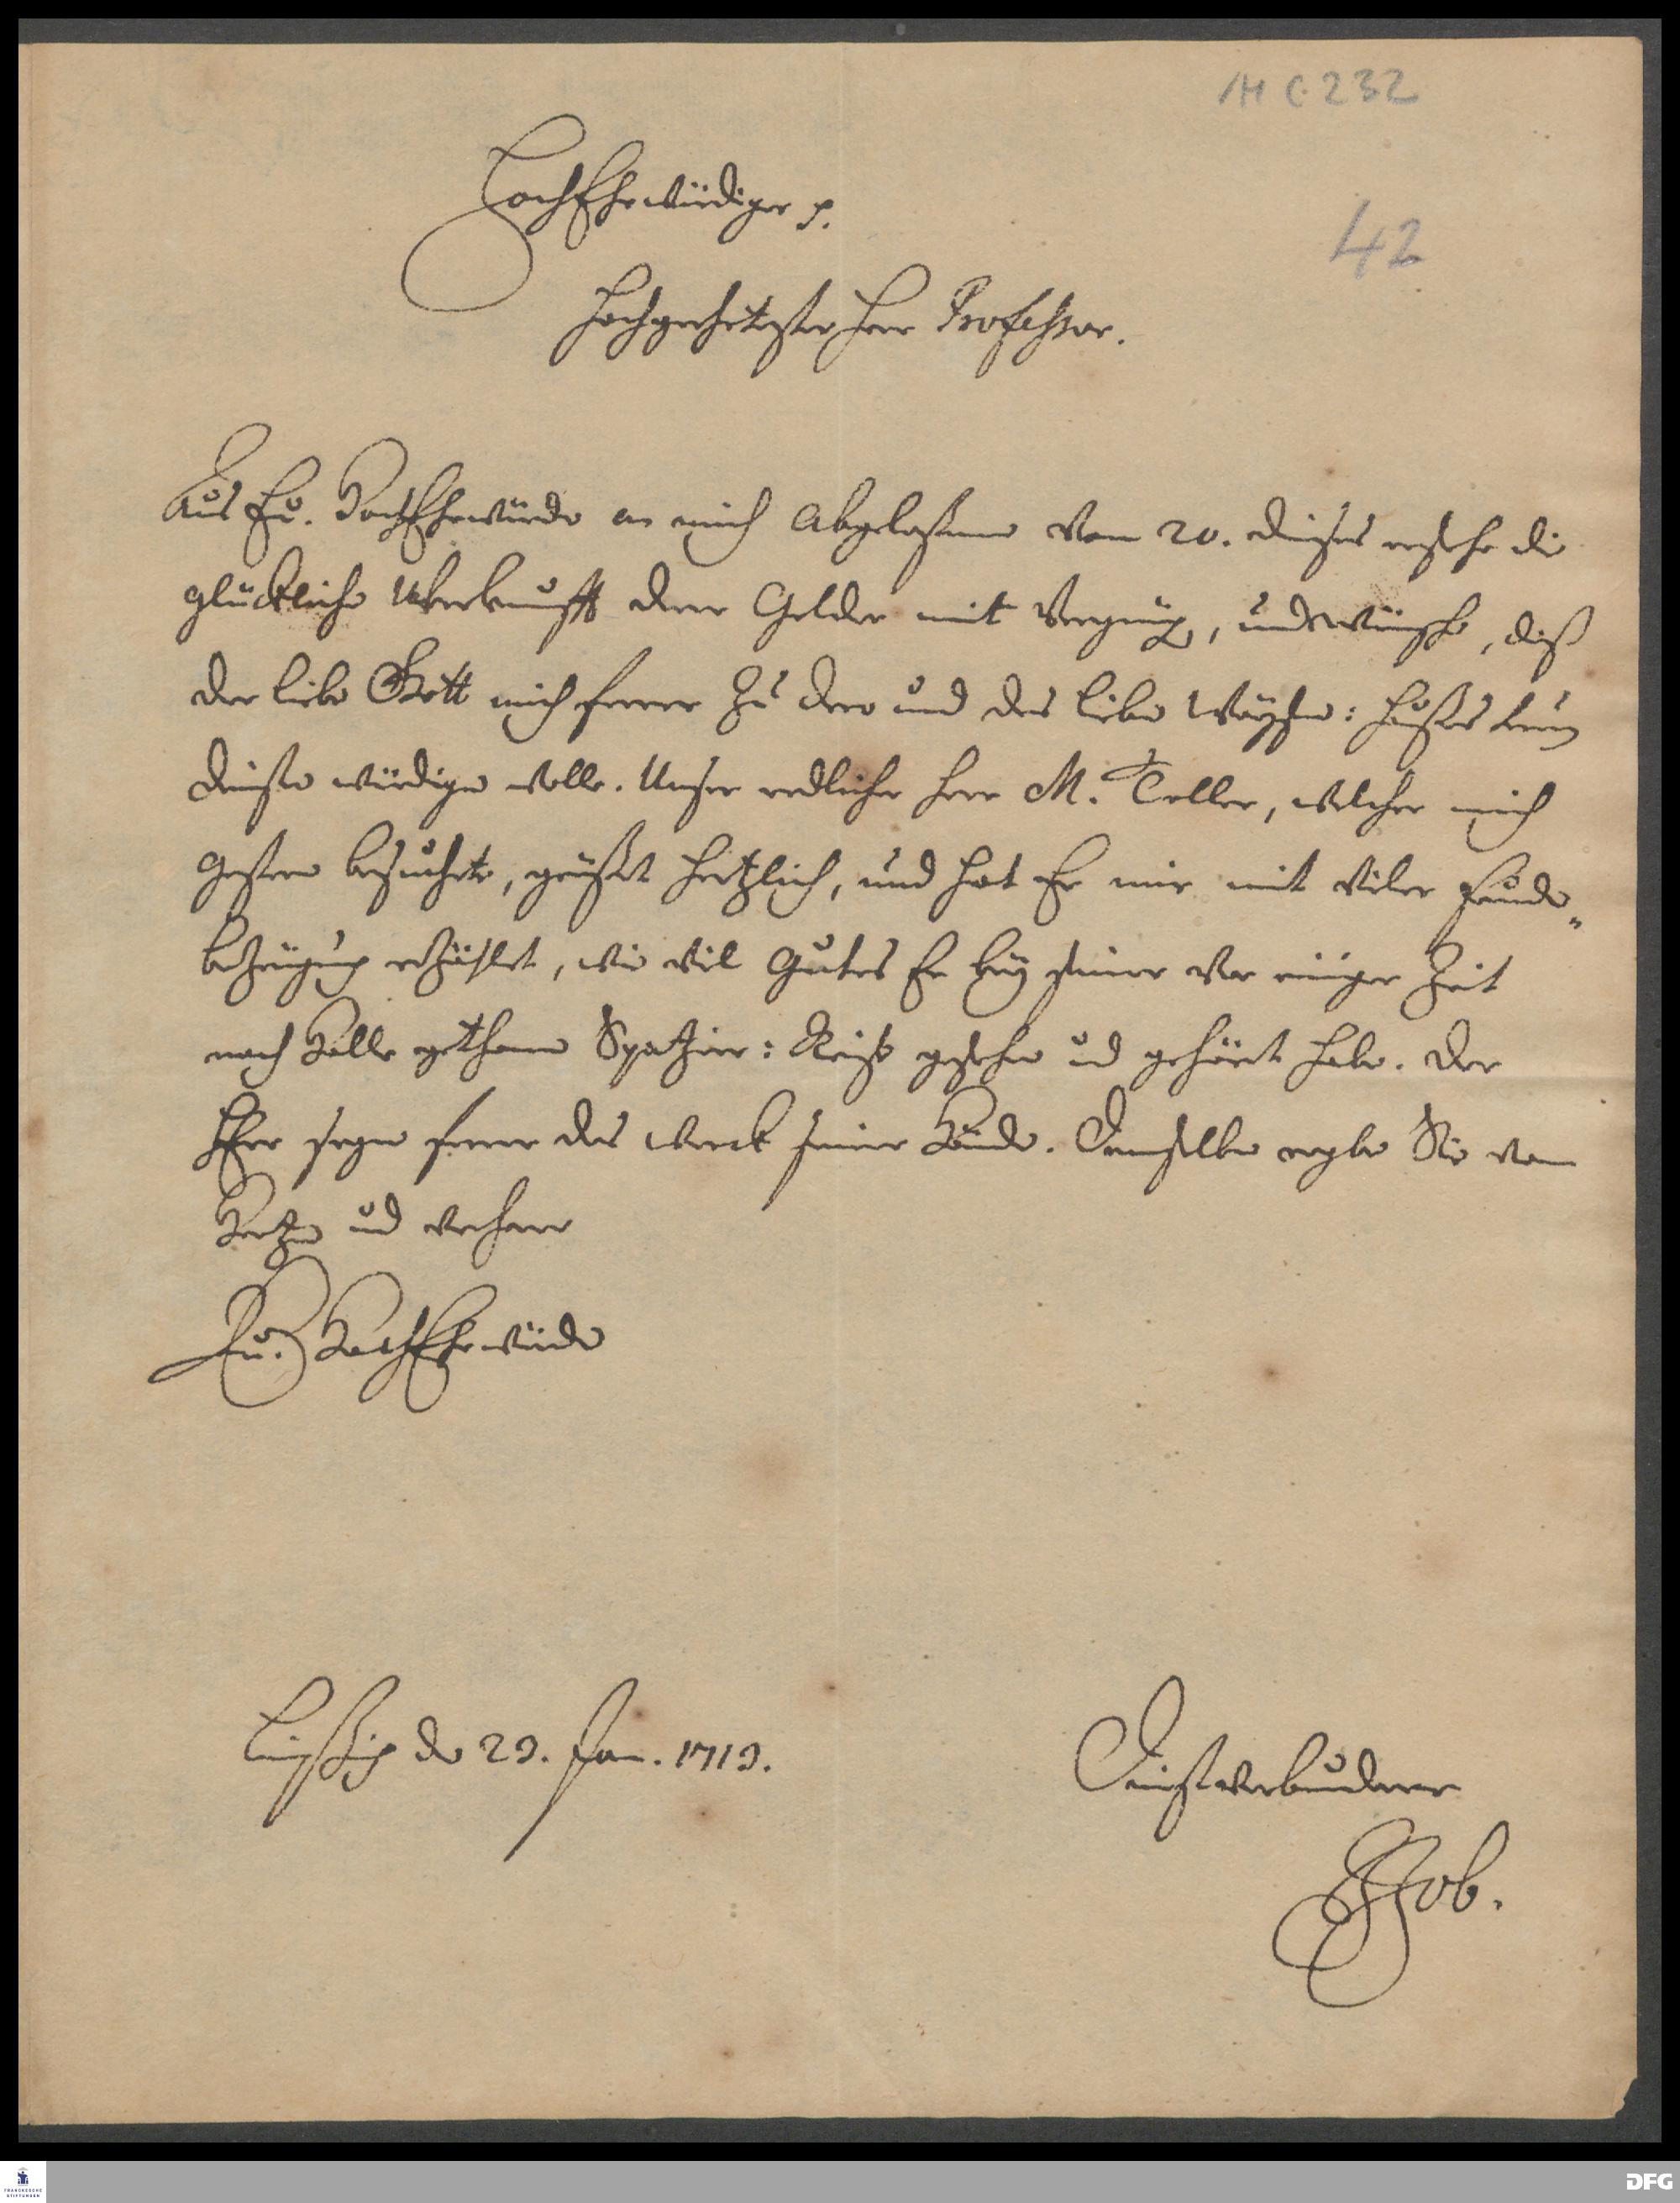 /H C 232
HochEhrwürdiger p.
42
Hochgeehrtester Herr Professor.
Aus Eu. HochEhrwürden an mich abgelaßenem vom 20. dieses ersehe die
glückliche Uberkunfft derer Gelder mit Vergnüg, und wünsche, daß
der liebe Gott mich ferner zu dero und des lieben Wäysen: Haußes
dienste würdigen wolle. Unser redlicher Herr M. Teller, welcher mich
gestern besuchete, grüßet hertzlich, und hat Er mir mit vieler Freuden„
bezeugung erzählet, wie viel Gutes Er bey seiner vor einiger Zeit
nach Halle gethanen Spatzier: Reise gesehen und gehöret habe. Der
HErr segne ferner das werck seiner Hände. Demselben ergebe Sie von
Hertzen und verharre
Eu. HochEhrwürden
Leipzig den 23. Jan. 1713.
Dienstverbundener
Job.
FRANCKESCHE
STIFTUNGEN
DFG